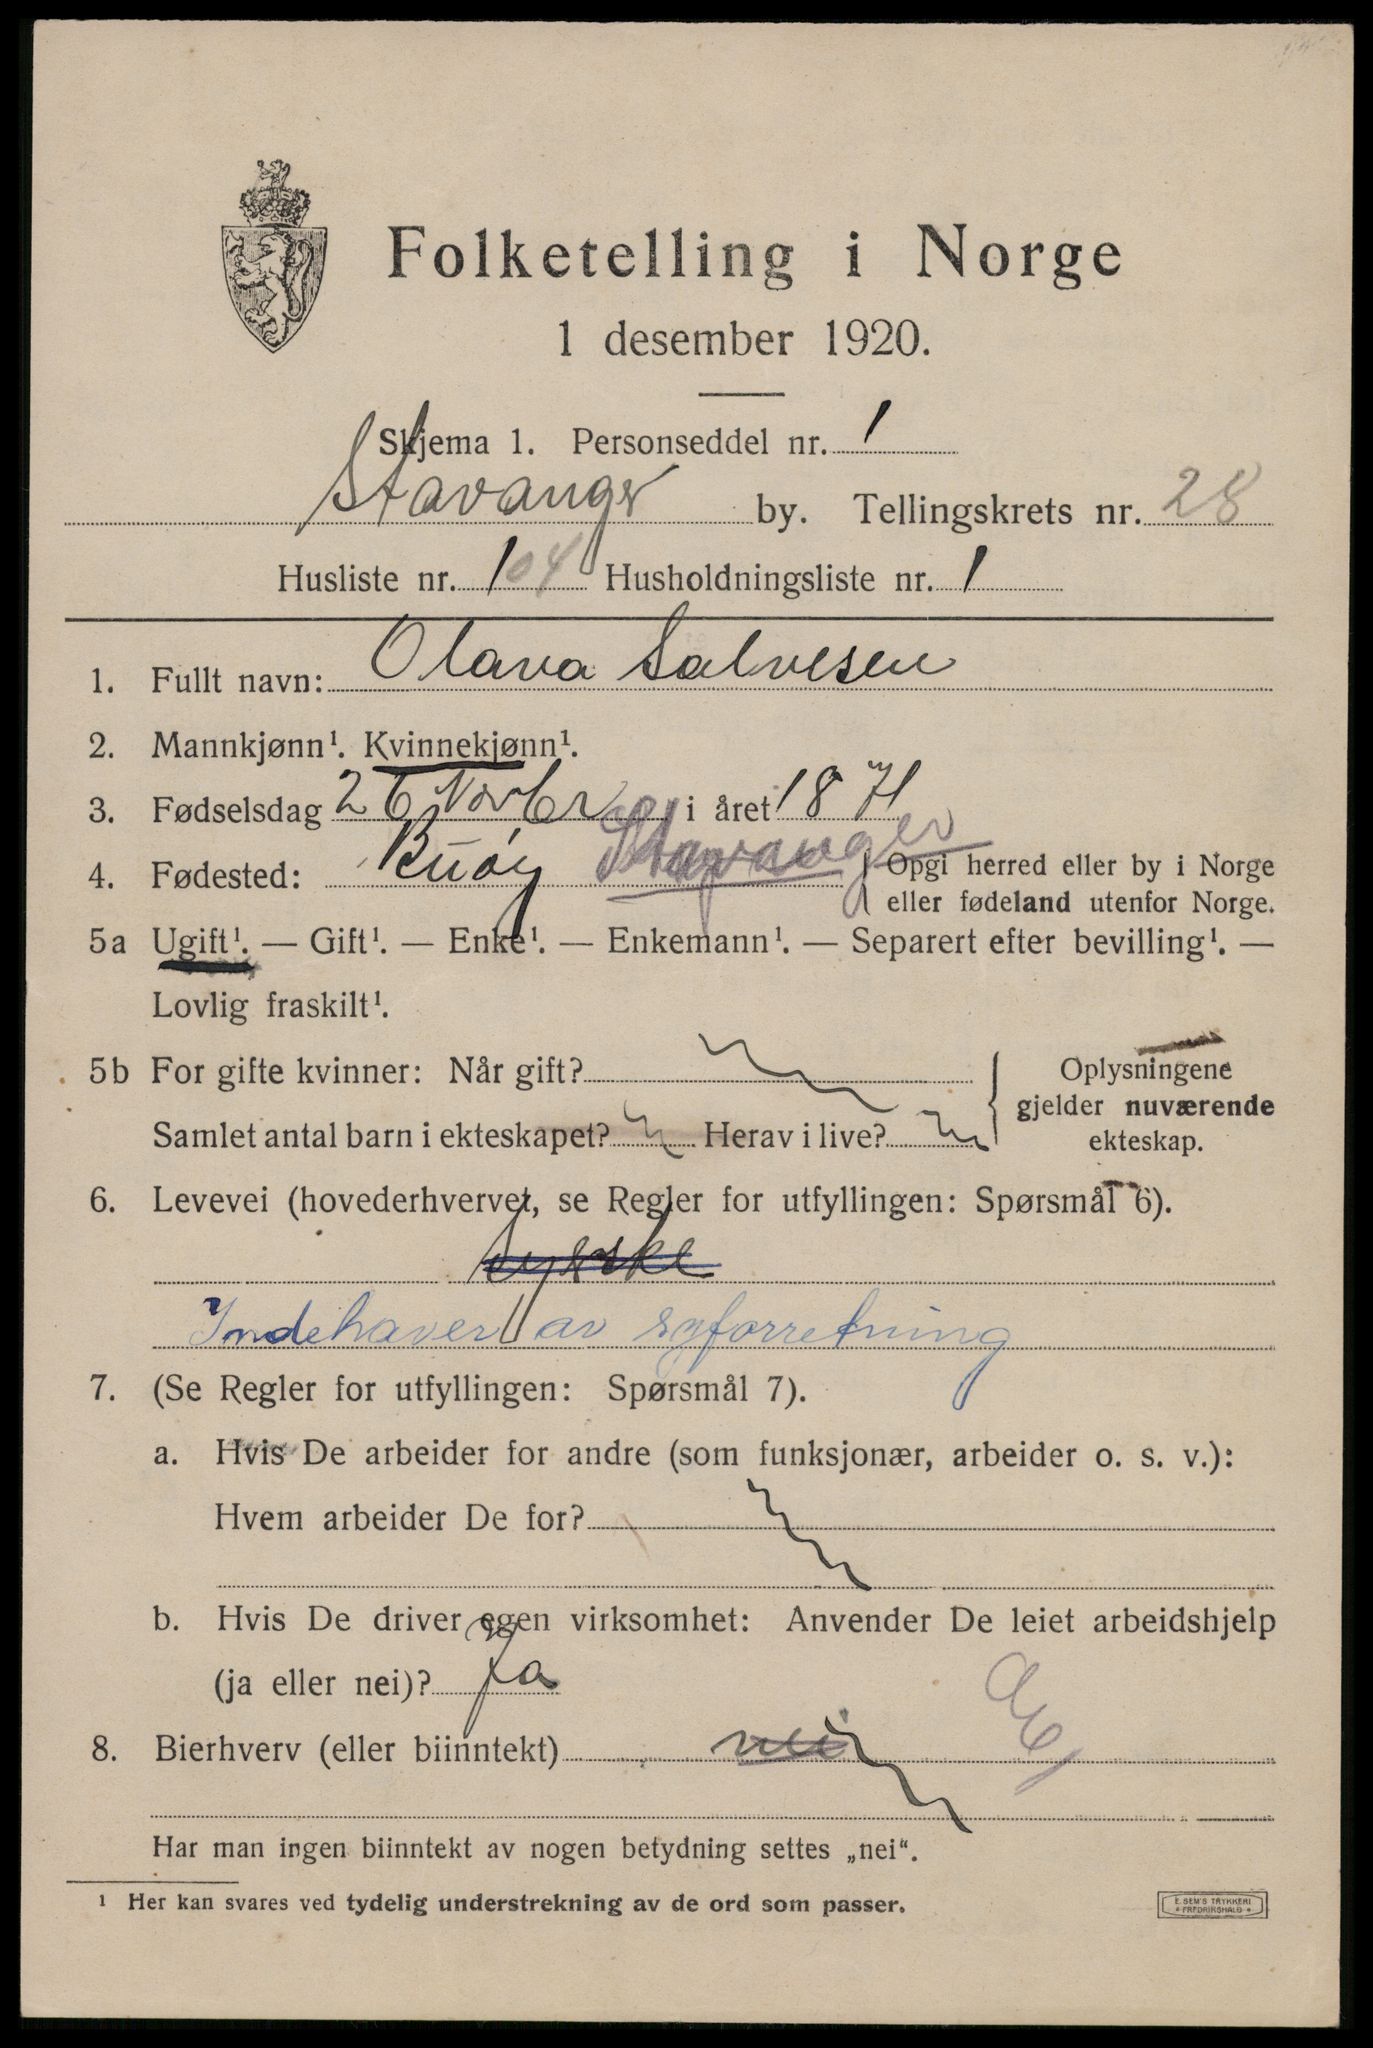 Folketelling i Norge
1 desember 1920.
Skjema 1. Personseddel nr. 1
Stavanger by. Tellingskrets nr. 28
Husliste nr. 104 Husholdningsliste nr. 1
1. Fullt navn: Olava Salvesen
2. Mannkjønn¹. Kvinnekjønn¹.
3. Fødselsdag 26 Novbr i året 1871
4. Fødested: Buøy Stavanger { Opgi herred eller by i Norge
eller fødeland utenfor Norge.
5a Ugift¹. — Gift¹. — Enke¹. — Enkemann¹. — Separert efter bevilling¹. —
Lovlig fraskilt¹.
5b For gifte kvinner: Når gift? { Oplysningene
gjelder nuværende
Samlet antal barn i ekteskapet? Herav i live? ekteskap.
6. Levevei (hovederhvervet, se Regler for utfyllingen: Spørsmål 6).
Syerske
Indehaver av syforretning
7. (Se Regler for utfyllingen: Spørsmål 7).
a. Hvis De arbeider for andre (som funksjonær, arbeider o. s. v.):
Hvem arbeider De for?
b. Hvis De driver egen virksomhet: Anvender De leiet arbeidshjelp
(ja eller nei)? Ja
8. Bierhverv (eller biinntekt) nei
Har man ingen biinntekt av nogen betydning settes „nei“.
¹ Her kan svares ved tydelig understrekning av de ord som passer.
E. SEM'S TRYKKERI
* FREDRIKSHALD *